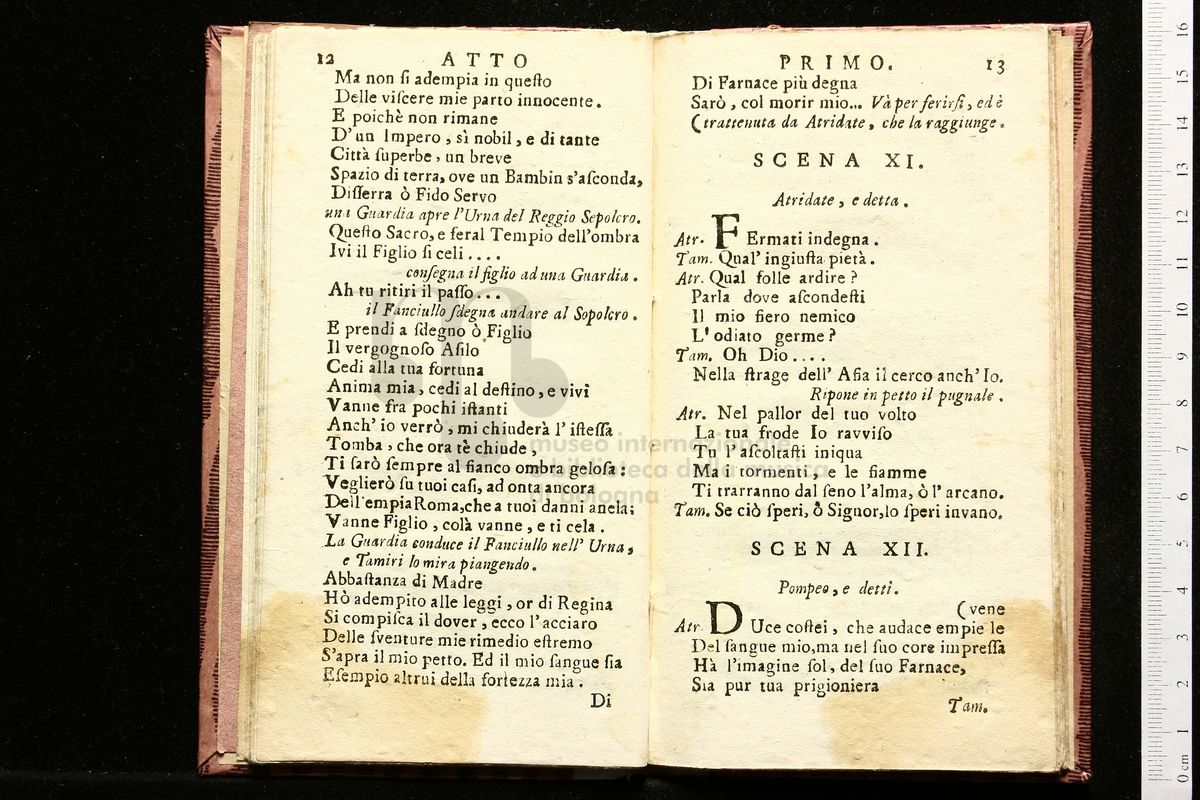 12 ATTO
Ma non ſi adempia in queſto
Delle viſcere mie parto innocente.
E poichè non rimane
D'un Impero, sì nobil, e di tante
Città ſuperbe, un breve
Spazio di terra, ove un Bambin s'aſconda,
Diſſerra ò Fido Servo
una Guardia apre l'Urna del Reggio Sepolcro.
Queſto Sacro, e feral Tempio dell'ombra
Ivi il Figlio ſi celi....
conſegna il figlio ad una Guardia.
Ah tu ritiri il paſſo...
il Fanciullo ſdegna andare al Sopolcro.
E prendi a ſdegno ò Figlio
Il vergognoſo Aſilo
Cedi alla tua fortuna
Anima mia, cedi al deſtino, e vivi
Vanne fra pochi iſtanti
Anch' io verrò, mi chiuderà l' iſteſſa
Tomba, che ora tè chiude,
Ti ſarò ſempre al fianco ombra geloſa:
Veglierò ſu tuoi caſi, ad onta ancora
Dell'empia Roma, che a tuoi danni anela;
Vanne Figlio, colà vanne, e ti cela.
La Guardia conduce il Fanciullo nell' Urna,
e Tamiri lo mira piangendo.
Abbaſtanza di Madre
Hò adempito alle leggi, or di Regina
Si compiſca il dover, ecco l'acciaro
Delle ſventure mie rimedio eſtremo
S'apra il mio petto. Ed il mio ſangue ſia
Eſempio altrui della fortezza mia.
Di
PRIMO. 13
Di Farnace più degna
Sarò, col morir mio... Và per ferirſi, ed è
(trattenuta da Atridate, che la raggiunge.
SCENA XI.
Atridate, e detta.
Atr. FErmati indegna.
Tam. Qual' ingiuſta pietà.
Atr. Qual folle ardire?
Parla dove aſcondeſti
Il mio fiero nemico
L' odiato germe?
Tam. Oh Dio....
Nella ſtrage dell' Aſia il cerco anch' Io.
Ripone in petto il pugnale.
Atr. Nel pallor del tuo volto
La tua frode Io ravviſo
Tu l' aſcoltaſti iniqua
Ma i tormenti, e le fiamme
Ti trarranno dal ſeno l'alma, ò l' arcano.
Tam. Se ciò ſperi, ò Signor, lo ſperi invano.
SCENA XII.
Pompeo, e detti.
(vene
Atr DUce coſtei, che audace empie le
Del ſangue mio, ma nel ſuo core impreſſa
Hà l'imagine ſol, del ſuo Farnace,
Sia pur tua prigioniera
Tam.
museo internazionale
e biblioteca della musica
di bologna
0 cm 1 2 3 4 5 6 7 8 9 10 11 12 13 14 15 16